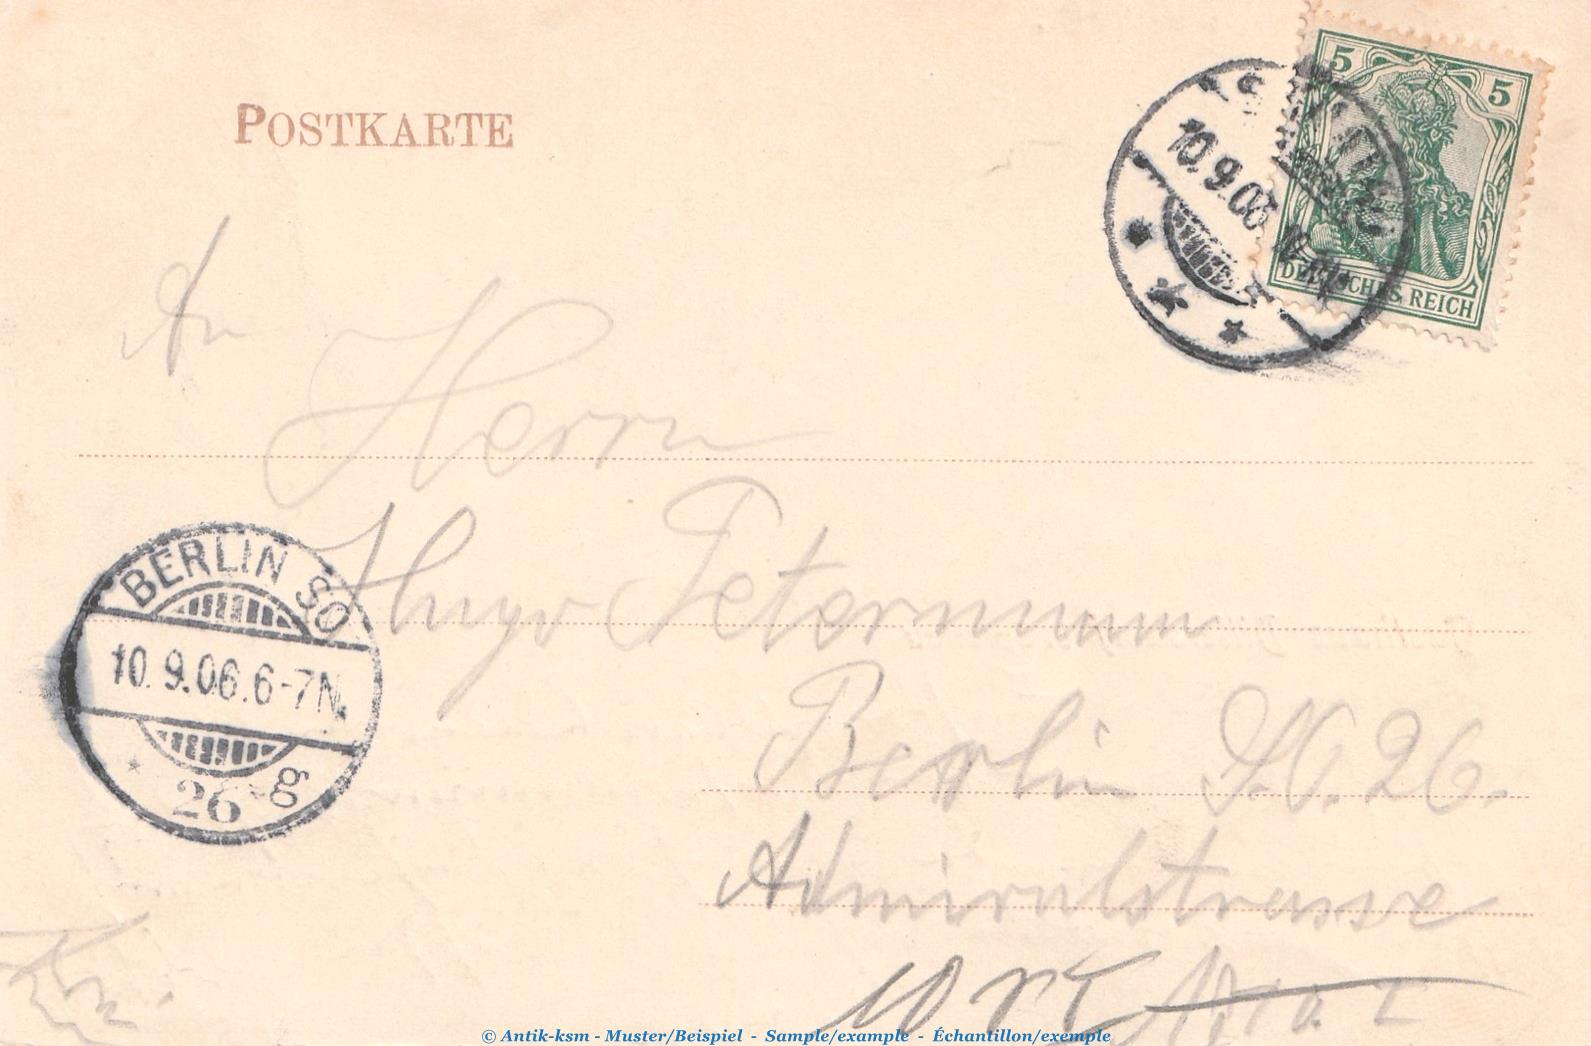 POSTKARTE
5 5
10.9.06
DEUTSCHES REICH
An
Herrn
Hugo Petermann
BERLIN SO
10.9.06.6-7N.
26 g
Berlin S.O. 26.
Admiralstrasse
© Antik-ksm - Muster/Beispiel - Sample/example - Échantillon/exemple